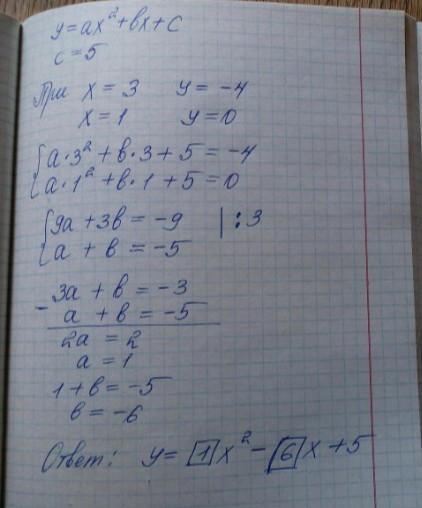 y = ax² + bx + c
c = 5
При x = 3 y = -4
x = 1 y = 0
{ a·3² + b·3 + 5 = -4
{ a·1² + b·1 + 5 = 0
{ 9a + 3b = -9 | : 3
{ a + b = -5
- 3a + b = -3
a + b = -5
2a = 2
a = 1
1 + b = -5
b = -6
Ответ: y = [1]x² - [6]x + 5